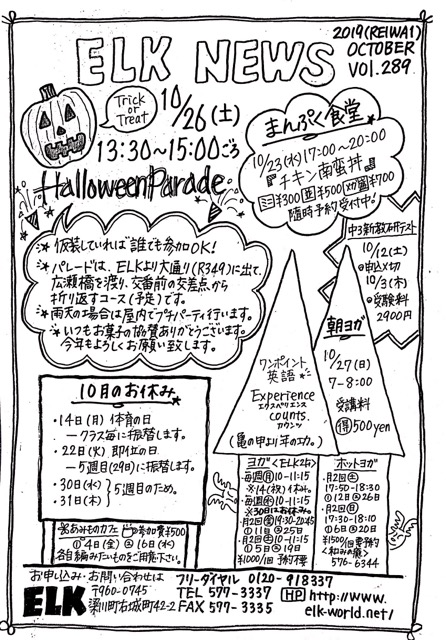 2019(REIWA1)
OCTOBER
VOL.289
ELK NEWS
Trick
or
Treat
10/26(土)
13:30~15:00ごろ
Halloween Parade
まんぷく食堂
10/23(水)17:00~20:00
『チキン南蛮丼』
ミニ¥300 並¥500 ¥700
随時予約受付中。
*仮装していれば誰でも参加OK!
*パレードは、ELKより大通り(R349)に出て、
広瀬橋を渡り、交番前の交差点から
折り返すコース(予定)です。
*雨天の場合は屋内でプチパーティ行います。
*いつもお菓子の協賛ありがとうございます。
今年もよろしくお願い致します。
中3新教研テスト
10/12(土)
◎申込〆切
10/3(木)
◎受験料
2900円
朝ヨガ
10/27(日)
7-8:00
受講料
得500yen
ワンポイント
英語
Experience
エクスペリエンス
counts.
カウンツ
(亀の甲より年の功。)
10月のお休み
・14日(月) 体育の日
―クラス毎に振替します。
・22日(火) 即位の日
―5週目(29日)に振替します。
・30日(水)
・31日(木)
5週目のため。
※あみものカフェ 参加費¥500
①4日(金) ③16日(水)
各自編みたいものをご用意下さい。
ヨガ<ELK2F>
・毎週月10-11:15
※14(祝)休み。
・毎週水10-11:15
※30日はお休み。
・月2回金19:30-20:45
①11日 ②25日
・月2回土10-11:15
①5日 ②19日
¥1000/回 予約不要
ホットヨガ
・月2回土
17:50-18:30
①12日 ②26日
・月2回日
17:30-18:10
①6日 ②20日
¥1500/回 要予約
<和みの癒>
576-6344
お申し込み・お問い合わせは
ELK
〒960-0745
梁川町右城町42-2
フリーダイヤル 0120-918337
TEL 577-3337
FAX 577-3335
HP http://www.
elk-world.net/